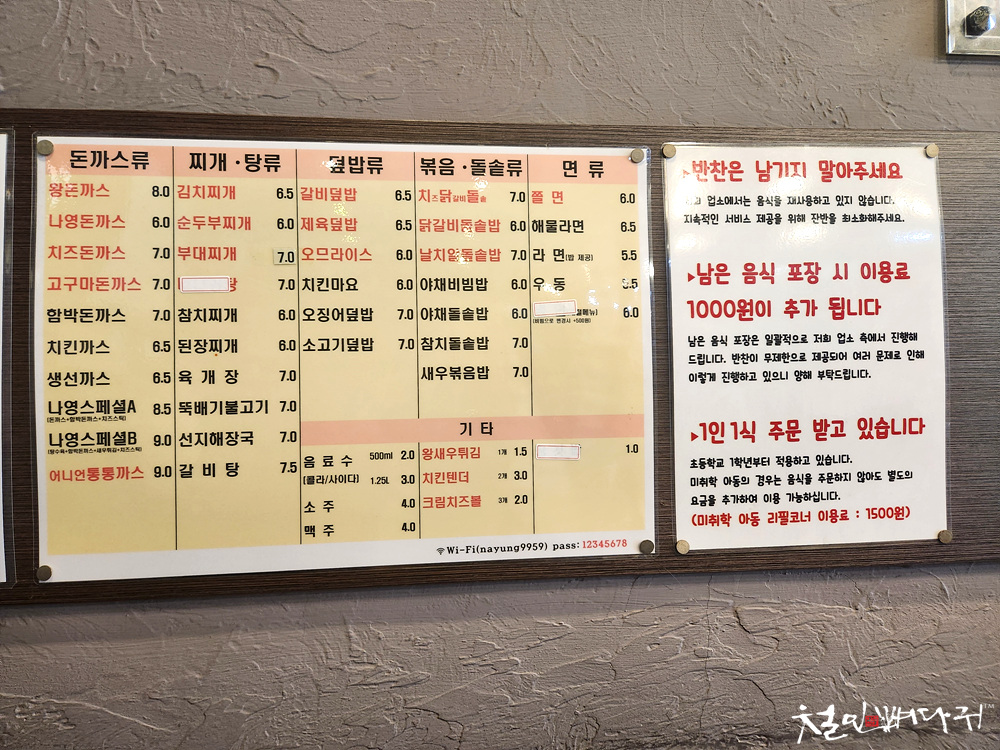 돈까스류
왕돈까스 8.0
나영돈까스 6.0
치즈돈까스 7.0
고구마돈까스 7.0
함박돈까스 7.0
치킨까스 6.5
생선까스 6.5
나영스페셜A 8.5
(돈까스+함박돈까스+치즈스틱)
나영스페셜B 9.0
(탕수육+함박돈까스+새우튀김+치즈스틱)
어니언통통까스 9.0
찌개·탕류
김치찌개 6.5
순두부찌개 6.0
부대찌개 7.0
탕 7.0
참치찌개 6.0
된장찌개 6.0
육개장 7.0
뚝배기불고기 7.0
선지해장국 7.0
갈비탕 7.5
덮밥류
갈비덮밥 6.5
제육덮밥 6.5
오므라이스 6.0
치킨마요 6.0
오징어덮밥 7.0
소고기덮밥 7.0
볶음·돌솥류
치즈닭갈비돌솥 7.0
닭갈비돌솥밥 6.0
날치알돌솥밥 7.0
야채비빔밥 6.0
야채돌솥밥 6.0
참치돌솥밥 7.0
새우볶음밥 7.0
면류
쫄면 6.0
해물라면 6.5
라면(밥 제공) 5.5
우동 6.5
6.0
(비빔으로 변경시 +500원)
기타
음료수 500ml 2.0
(콜라/사이다) 1.25L 3.0
소주 4.0
맥주 4.0
왕새우튀김 1개 1.5
치킨텐더 2개 3.0
크림치즈볼 3개 2.0
1.0
Wi-Fi(nayung9959) pass: 12345678
▸반찬은 남기지 말아주세요
업소에서는 음식을 재사용하고 있지 않습니다.
지속적인 서비스 제공을 위해 잔반을 최소화해주세요.
▸남은 음식 포장 시 이용료
1000원이 추가 됩니다
남은 음식 포장은 일괄적으로 저희 업소 측에서 진행해
드립니다. 반찬이 무제한으로 제공되어 여러 문제로 인해
이렇게 진행하고 있으니 양해 부탁드립니다.
▸1인 1식 주문 받고 있습니다
초등학교 1학년부터 적용하고 있습니다.
미취학 아동의 경우는 음식을 주문하지 않아도 별도의
요금을 추가하여 이용 가능하십니다.
(미취학 아동 리필코너 이용료 : 1500원)